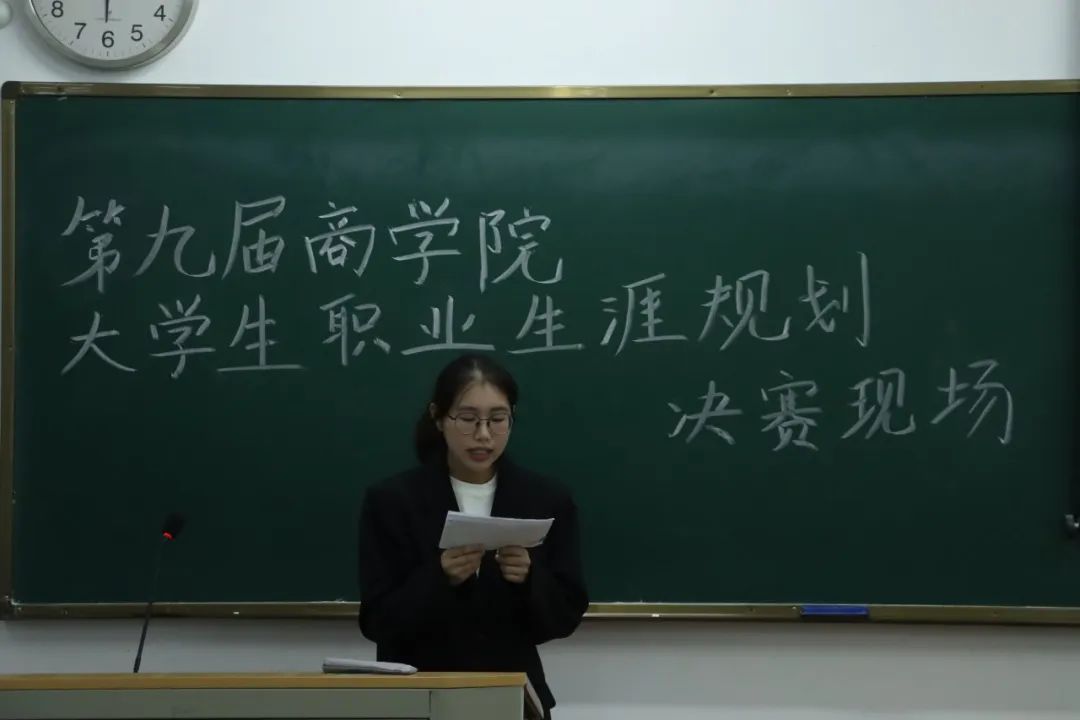 8 7 6 5 4
第九届商学院
大学生职业生涯规划
决赛现场